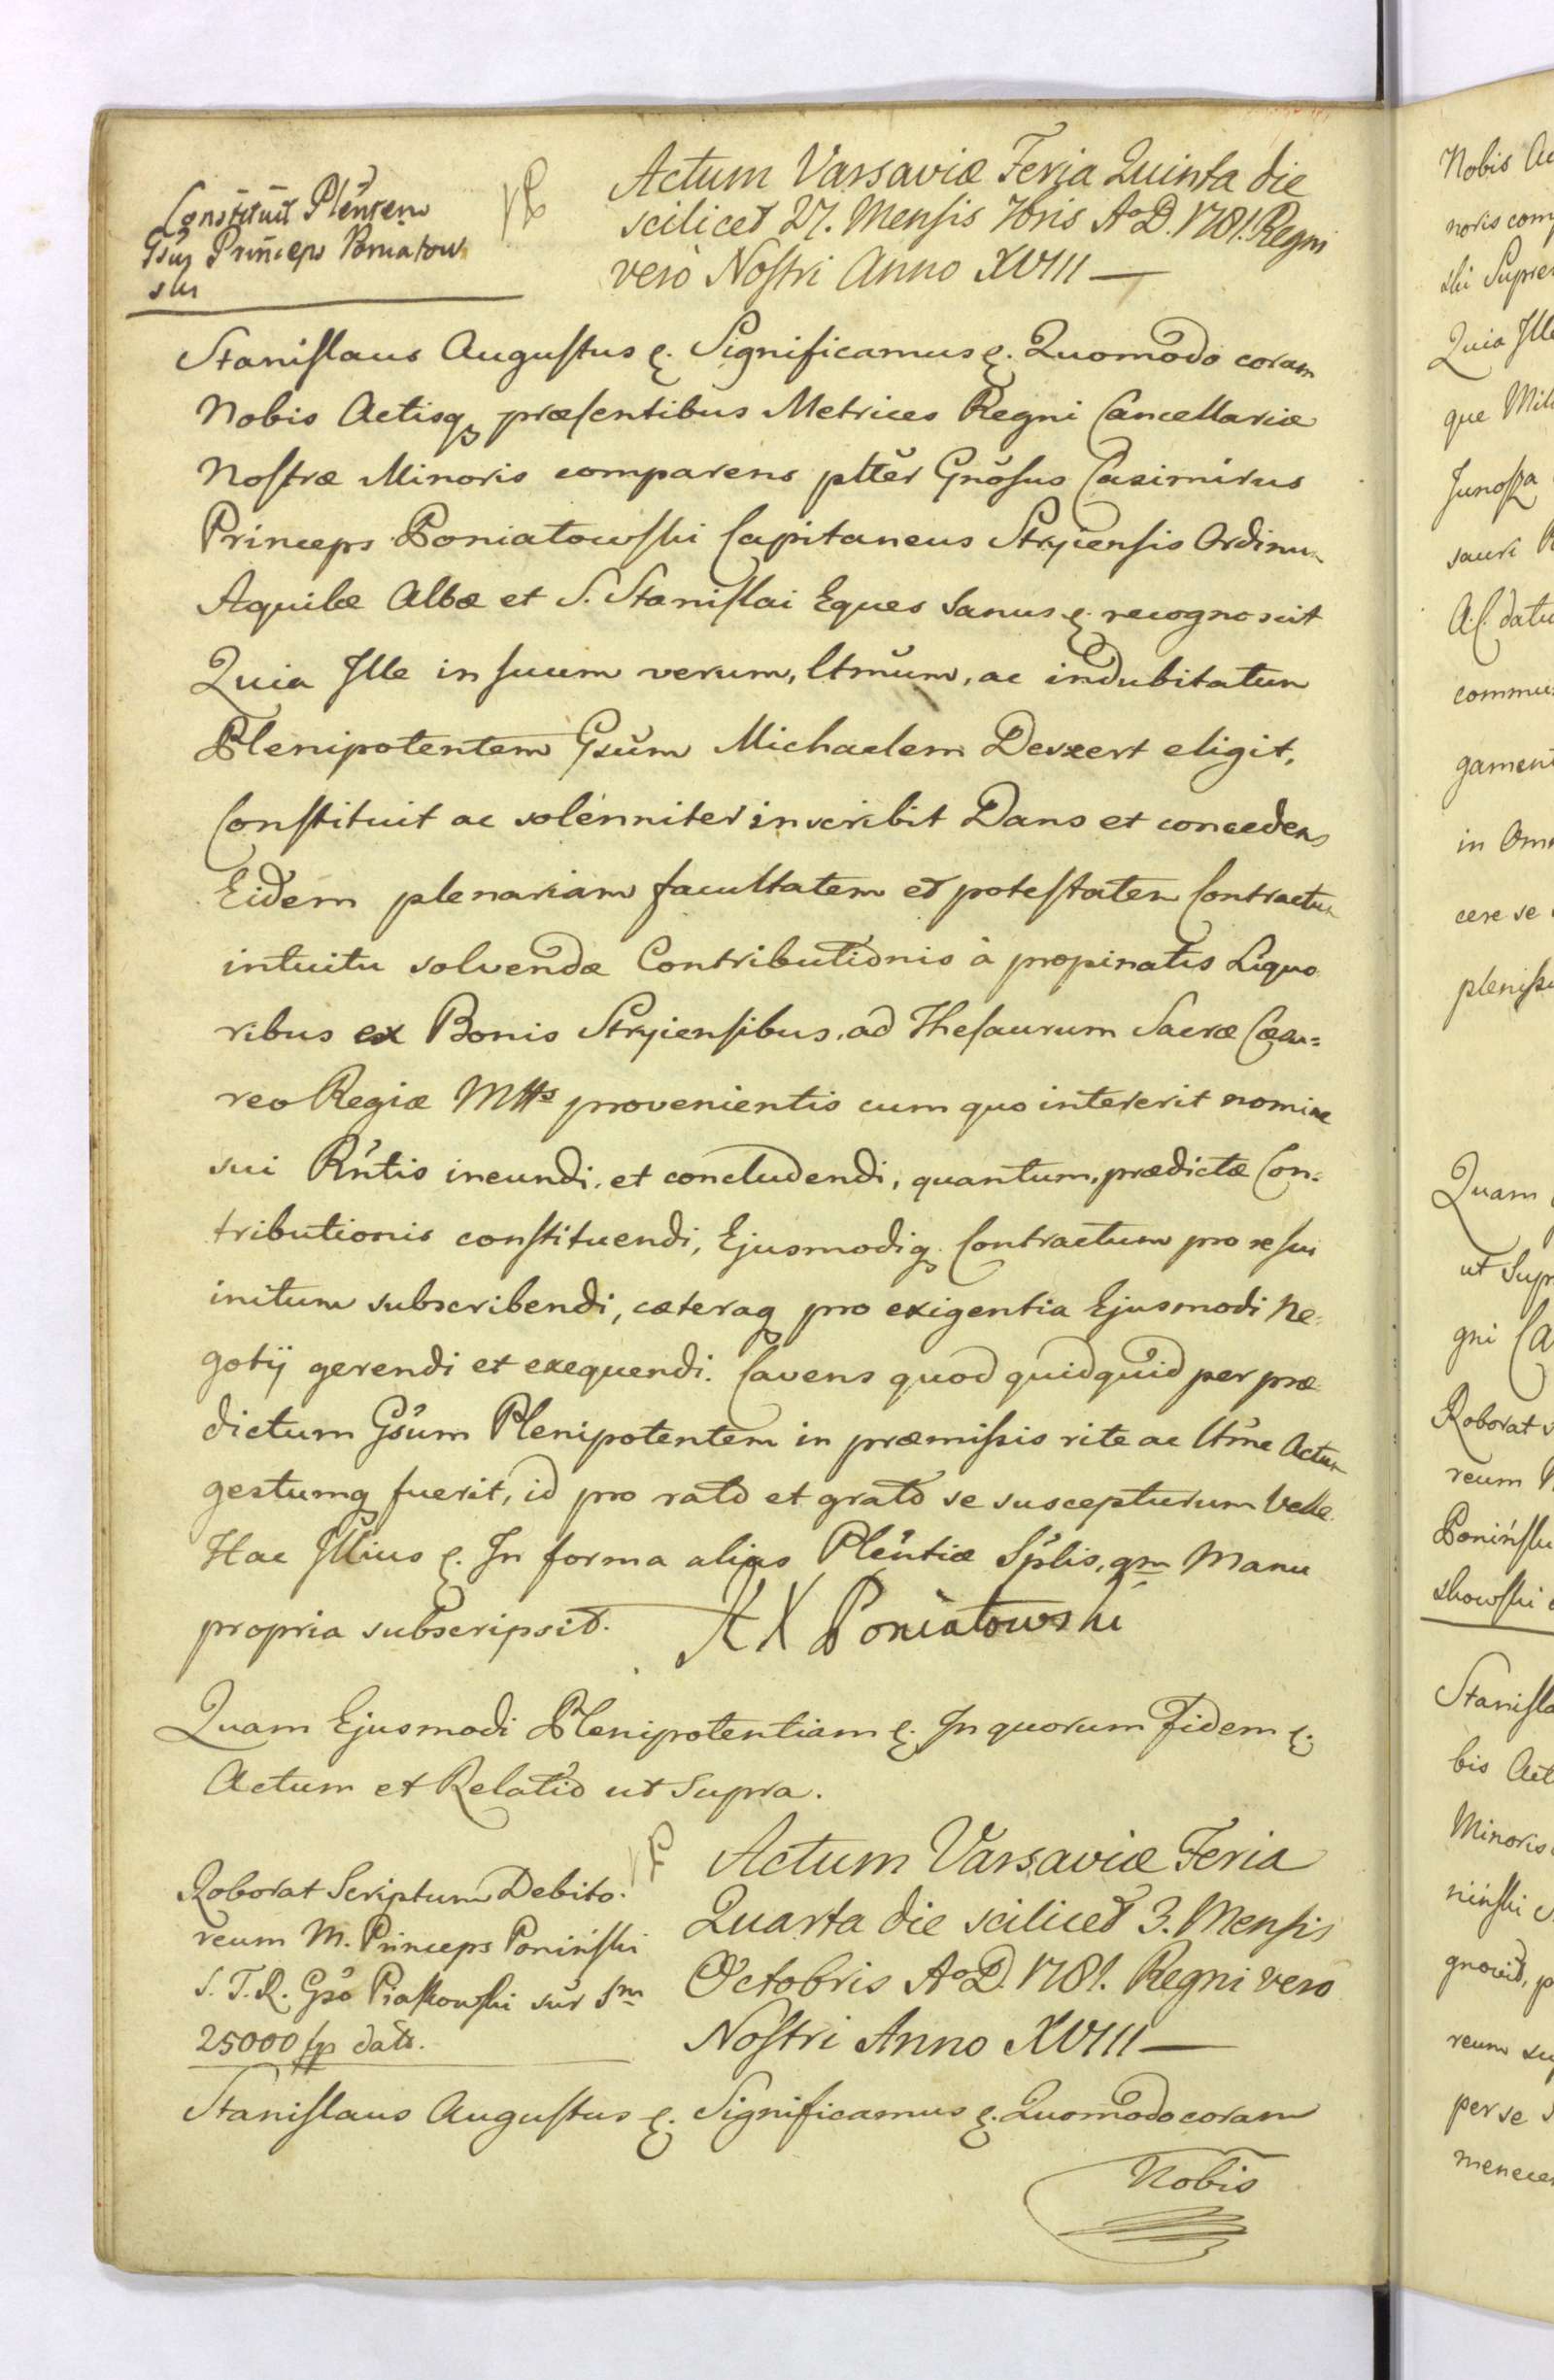 Constituit Plentem
Gsus Princeps Poniatow
ski
Actum Varsaviæ Feria Quinta die
scilicet 27. Mensis 7bris A°D. 1781. Regni
verò Nostri Anno XVIII —
Stanislaus Augustus &. Significamus &. Quomodo coram
Nobis Actisq præsentibus Metrices Regni Cancellariæ
Nostræ Minoris comparens pltter Gnosus Casimirus
Princeps Poniatowski Capitaneus Stryiensis Ordinum
Aquilæ Albæ et S. Stanislai Eques sanus &. recognoscit
Quia Ille in suum verum, ltmum, ac indubitatum
Plenipotentem Gsum Michaelem Derxert eligit,
Constituit ac solenniter inscribit Dans et concedens
Eidem plenariam facultatem et potestatem Contractum
intuitu solvendæ Contributionis à propinatis Liquo
ribus ex Bonis Stryiensibus, ad Thesaurum Sacræ Cæsa=
reo Regiæ Mttis provenientis cum quo intererit nomine
sui Rntis ineundi, et concludendi, quantum, prædictæ Con=
tributionis constituendi, Ejusmodiq. Contractum pro se sui
initum subscribendi, cæteraq pro exigentia Ejusmodi Ne=
gotij gerendi et exequendi. Cavens quod quidquid per præ
dictum Gsum Plenipotentem in præmissis rite ac ltme Actum
gestumq fuerit, id pro rato et grato se suscepturum velle.
Hac Illius &. In forma alias Plentiæ Splis, qm Manu
propria subscripsit. K X Poniatowski
Quam Ejusmodi Plenipotentiam &. In quorum Fidem &.
Actum et Relatio ut Supra.
Roborat Scriptum Debito.
reum M. Princeps Poniński
S. T. R. Gso Piaskowski sur Sm
25000 fp dato.
Actum Varsaviæ Feria
Quarta die scilicet 3. Mensis
Octobris A°D. 1781. Regni vero
Nostri Anno XVIII —
Stanislaus Augustus &. Significamus &. Quomodo coram
Nobis
Nobis
noris com
ski Supre
Quia Ille
que Mili
Junosza
sauri
A.C. datu
commu
gament
in Om
cere se
pleniss
Quam
ut Sup
gni Ca
Roborat
reum
Poniński
skowski
Stanisla
bis Act
Minoris
niński
gnovit, p
reum su
per se